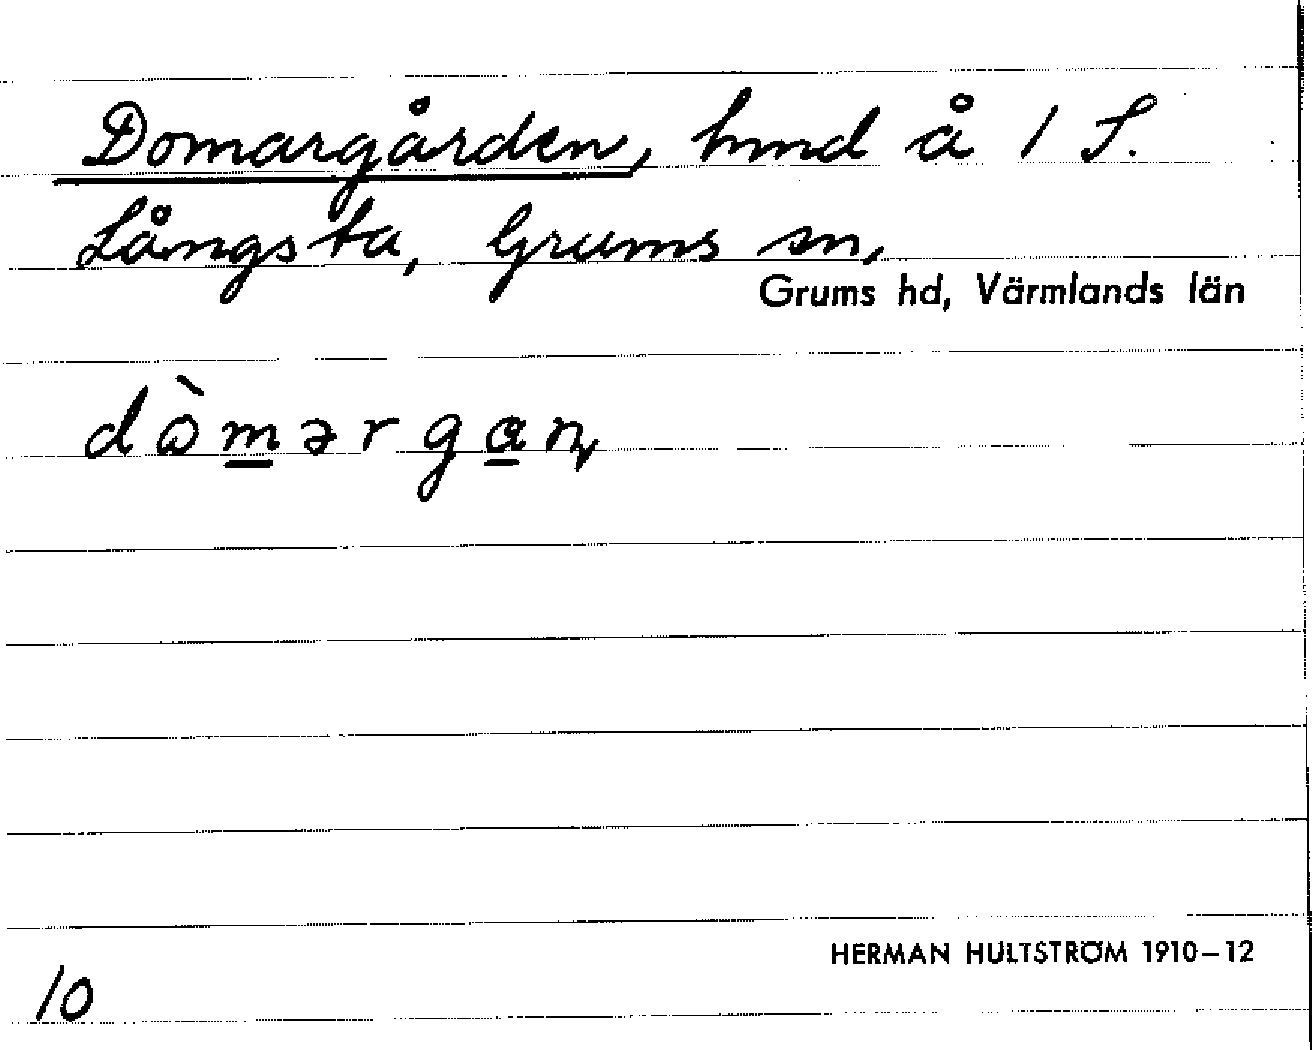 Domargården, hmd å 1 S.
Långsta, Grums sn,
Grums hd, Värmlands län
dòmərgan
HERMAN HULTSTRÖM 1910–12
10